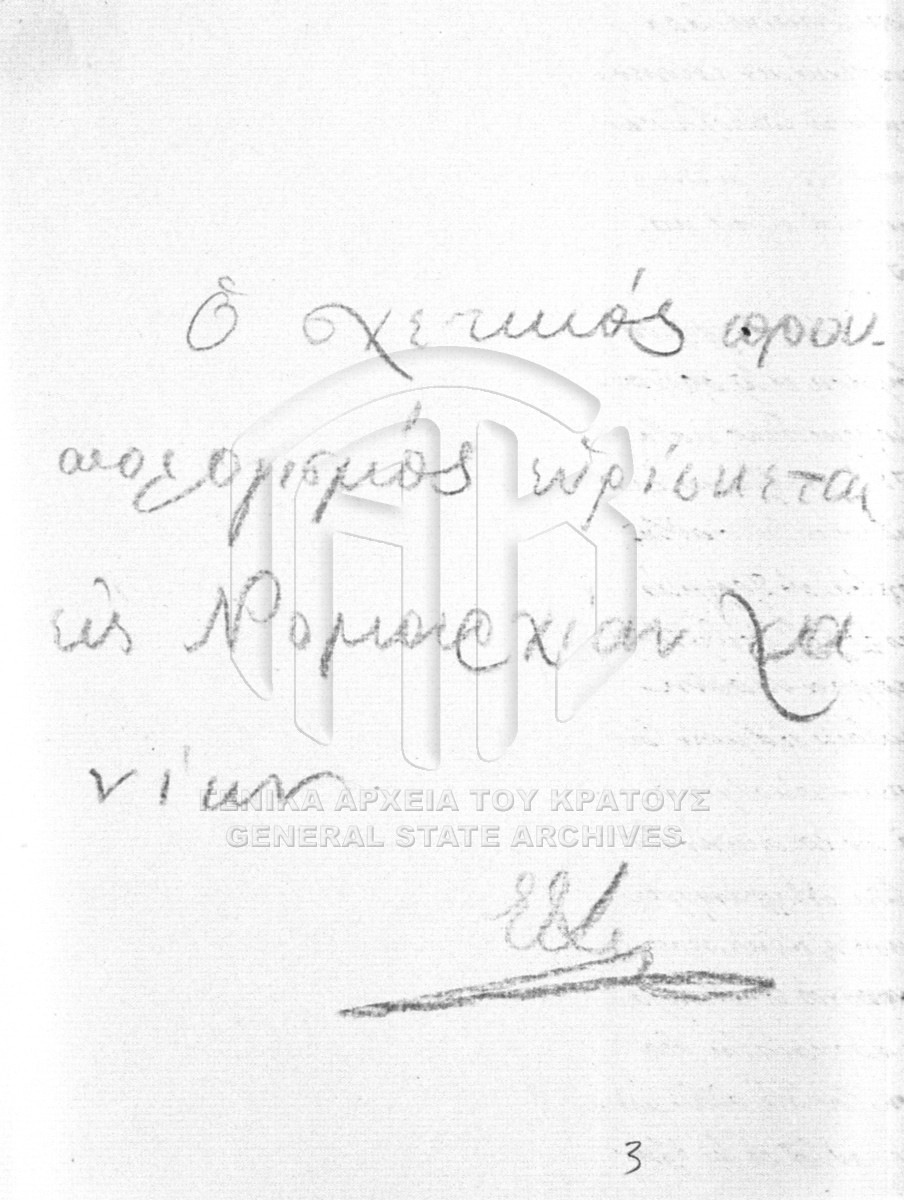 Ὁ σχετικός προϋ-
πολογισμός εὑρίσκεται
εἰς Νομαρχίαν Χα
νίων
ΓΕΝΙΚΑ ΑΡΧΕΙΑ ΤΟΥ ΚΡΑΤΟΥΣ
GENERAL STATE ARCHIVES
3